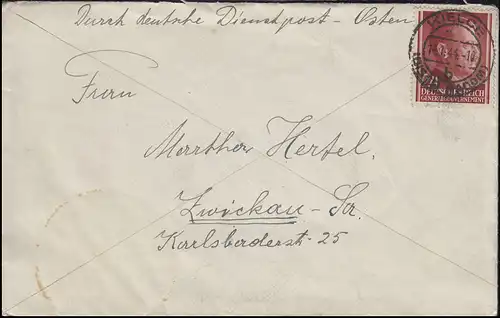 Durch deutsche Dienstpost - Osten
KIELCE
DEUTSCHES REICH
GENERALGOUVERNEMENT
Frau
Marther Hertel,
Zwickau - Sa.
Karlsbaderstr. 25